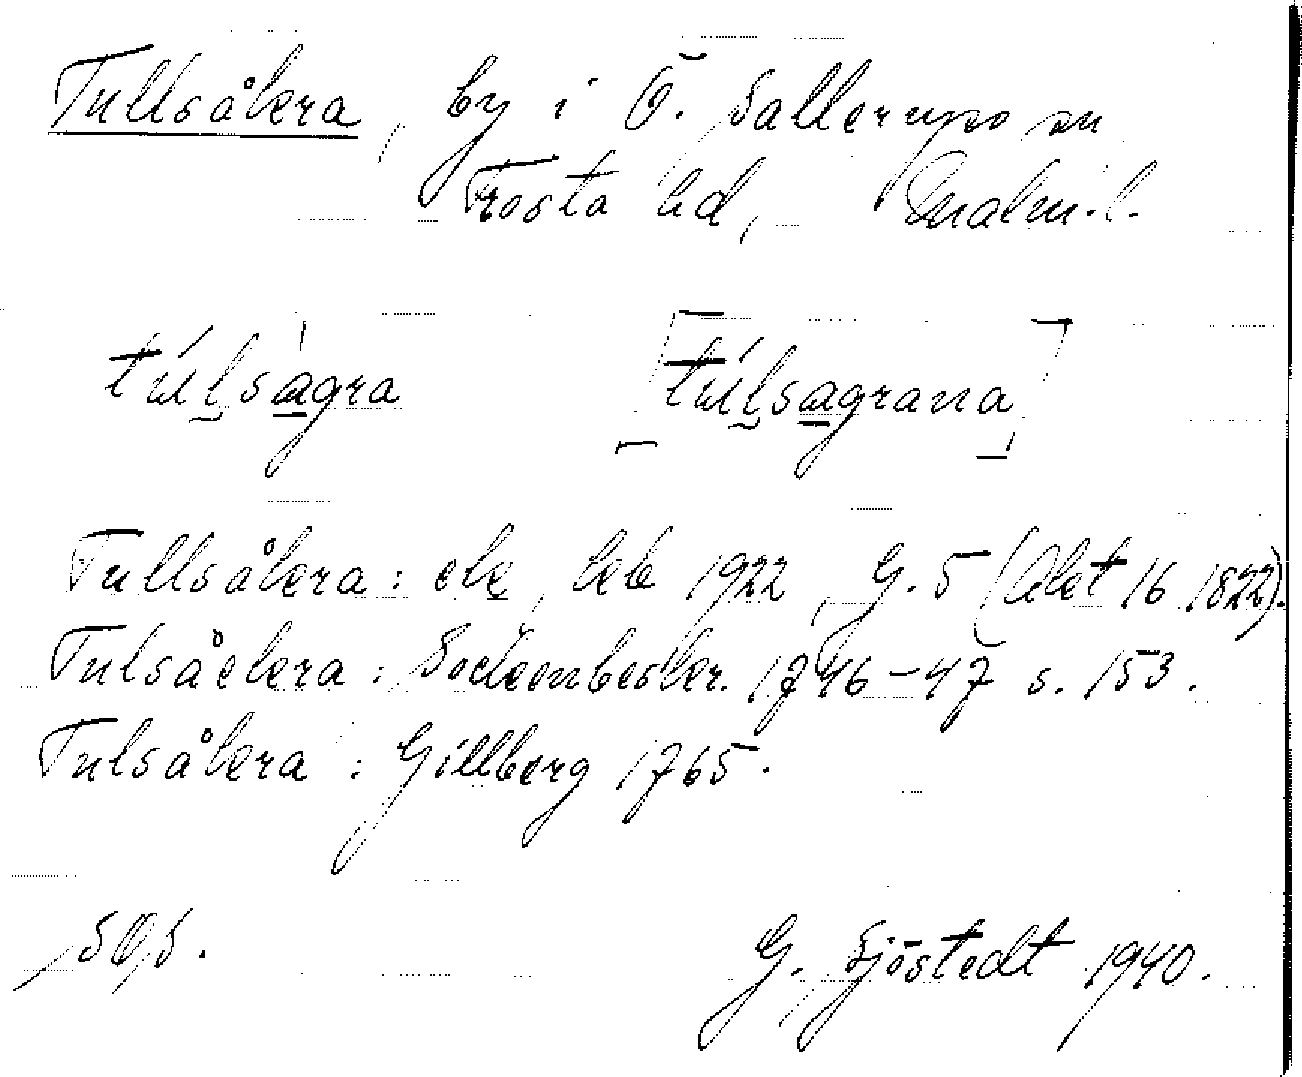 Tullsåkra, by i Ö. Sallerups sn
Frosta hd, Malm.l.
túlsàgra [túlsagrana]
Tullsåkra: ek, kbl 1922, G. 5 (Akt 16 1822).
Tulsåckra: Sockenbeskr. 1746–47 s. 153.
Tulsåkra: Gillberg 1765.
SOS.
G. Sjöstedt 1940.